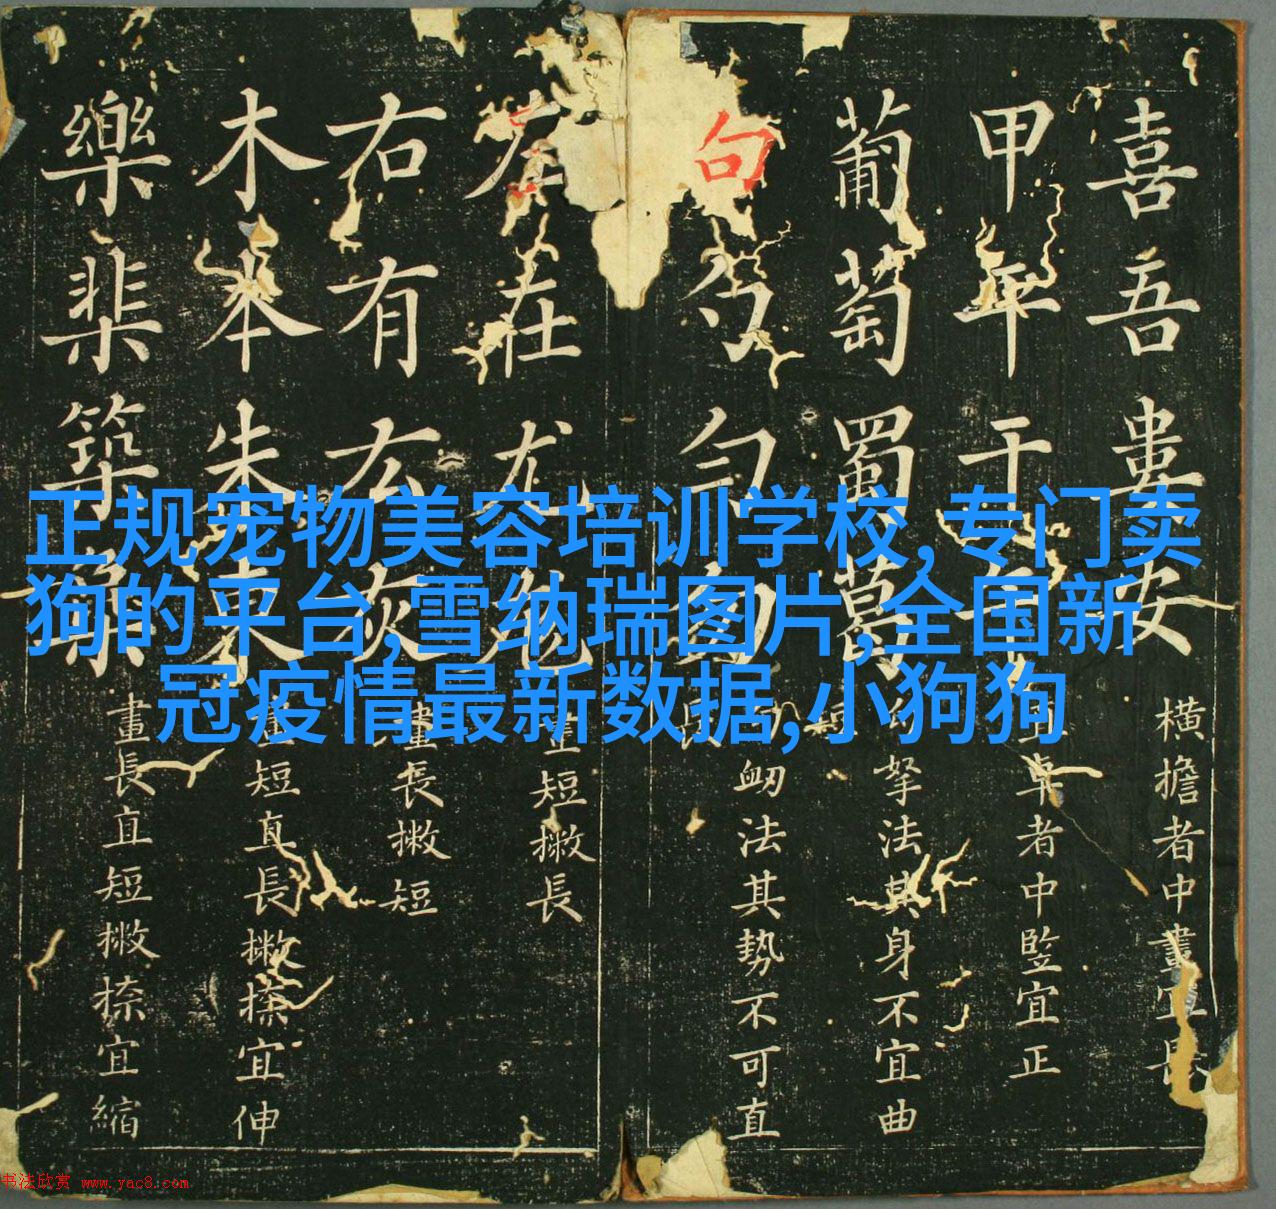 正规宠物美容培训学校,专门卖
狗的平台,雪纳瑞图片,全国新
冠疫情最新数据,小狗狗
喜吾婁安
橫擔者中畫宜長
甲平干
卓者中竪宜正
葡萄蜀萬
拏法其身不宜曲
句勺勻
衂法其势不可直
左在尤
短撇長
右有厷灰
畫長撇短
木本朱東
畫短直長撇捺宜伸
樂棐築
畫長直短撇捺宜縮
书法欣赏 www.yac8.com